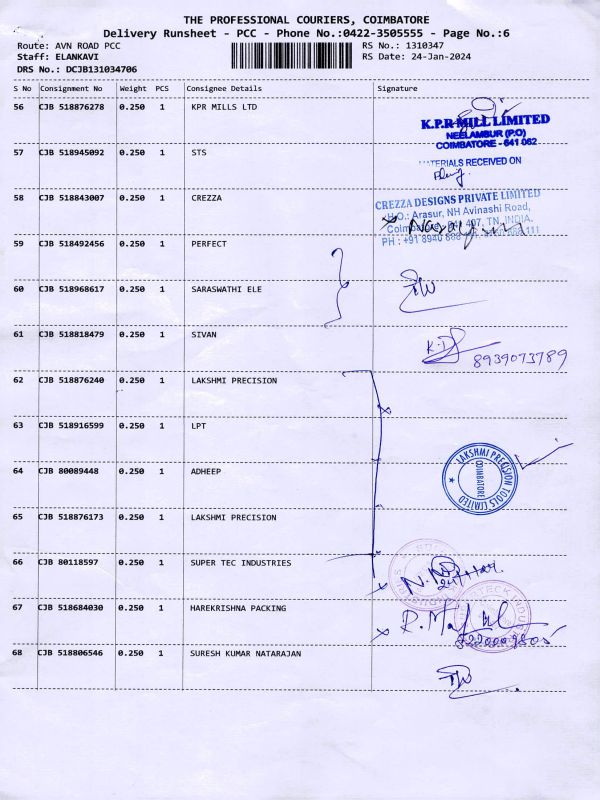 THE PROFESSIONAL COURIERS, COIMBATORE
Delivery Runsheet - PCC - Phone No.:0422-3505555 - Page No.:6
Route: AVN ROAD PCC
RS No.: 1310347
Staff: ELANKAVI
RS Date: 24-Jan-2024
DRS No.: DCJB131034706
S No Consignment No Weight PCS Consignee Details Signature
56 CJB 518876278 0.250 1 KPR MILLS LTD
K.P.R MILL LIMITED
NEELAMBUR (P.O)
COIMBATORE - 641 062
57 CJB 518945092 0.250 1 STS
MATERIALS RECEIVED ON
58 CJB 518843007 0.250 1 CREZZA
CREZZA DESIGNS PRIVATE LIMITED
H.O.: Arasur, NH Avinashi Road,
Coimbatore 641 407, TN, INDIA.
PH : +91 8940 888 111
59 CJB 518492456 0.250 1 PERFECT
60 CJB 518968617 0.250 1 SARASWATHI ELE
61 CJB 518818479 0.250 1 SIVAN
8939073789
62 CJB 518876240 0.250 1 LAKSHMI PRECISION
63 CJB 518916599 0.250 1 LPT
64 CJB 80089448 0.250 1 ADHEEP
LAKSHMI PRECISION TOOLS LIMITED
COIMBATORE
65 CJB 518876173 0.250 1 LAKSHMI PRECISION
66 CJB 80118597 0.250 1 SUPER TEC INDUSTRIES
67 CJB 518684030 0.250 1 HAREKRISHNA PACKING
68 CJB 518806546 0.250 1 SURESH KUMAR NATARAJAN